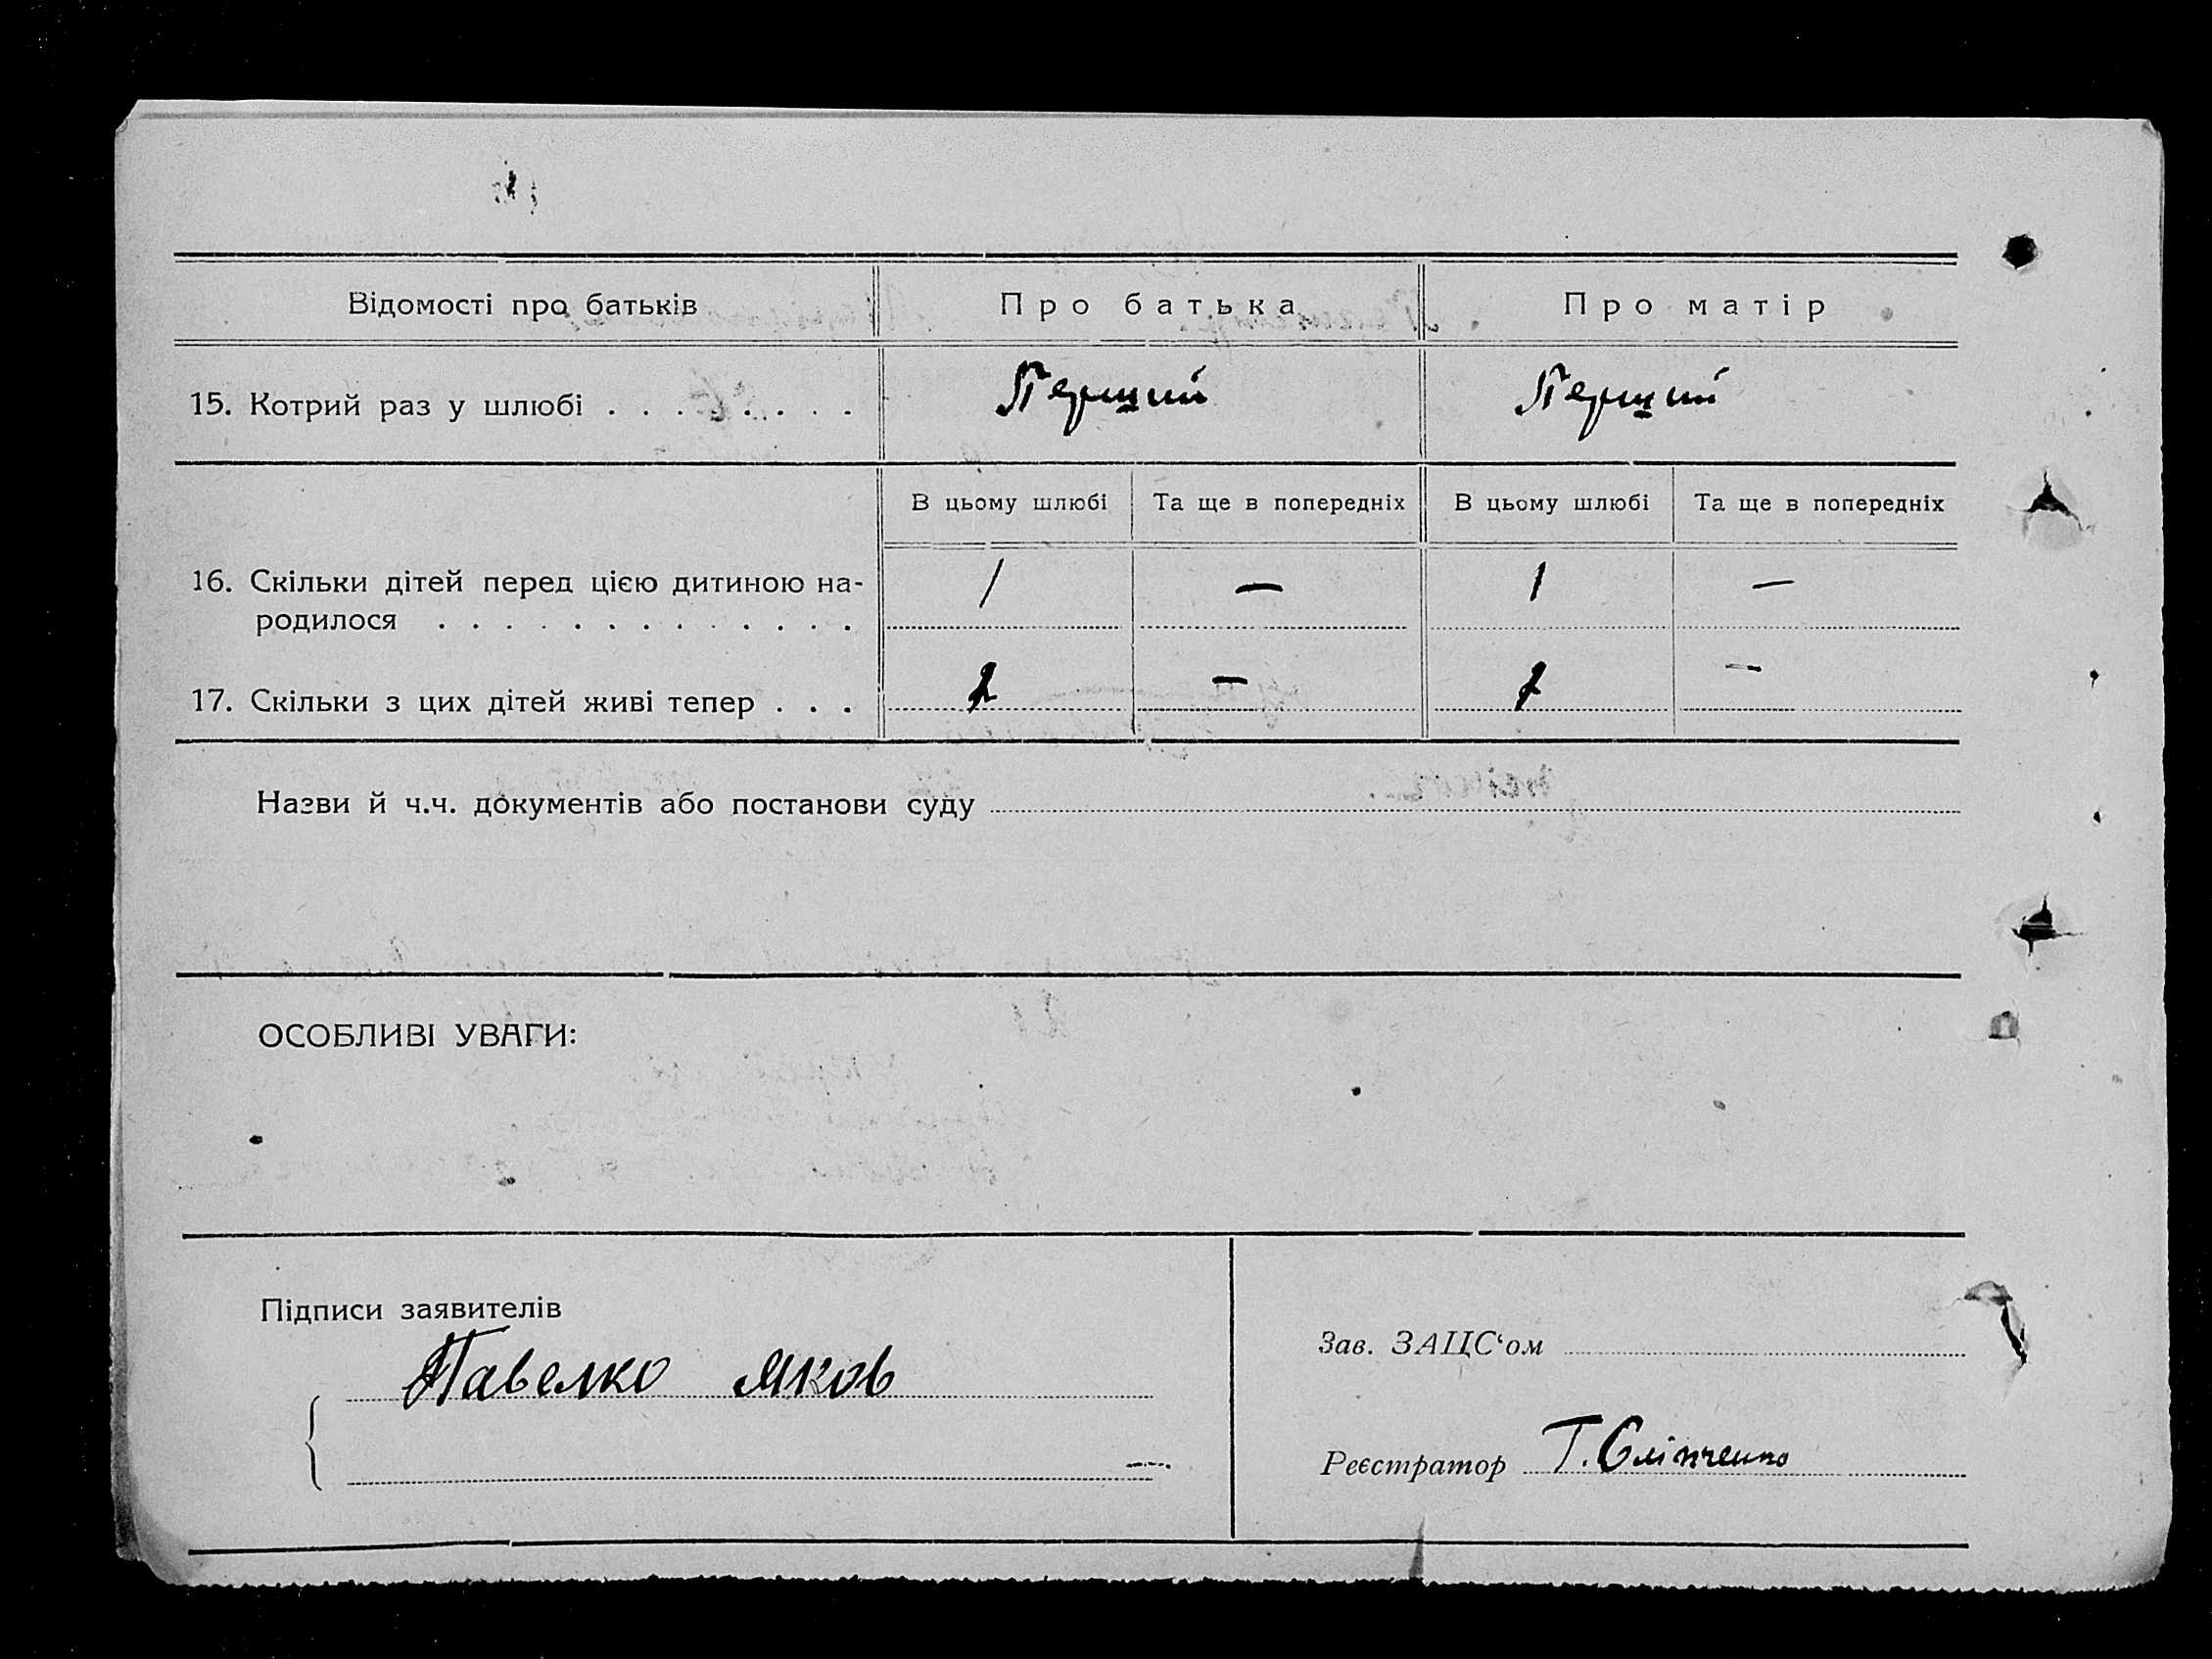 Відомості про батьків Про батька Про матір
15. Котрий раз у шлюбі . . . . . . . . Перший Перший
В цьому шлюбі Та ще в попередніх В цьому шлюбі Та ще в попередніх
16. Скільки дітей перед цією дитиною на-
родилося . . . . . . . . . . . . . 1 — 1 —
17. Скільки з цих дітей живі тепер . . . 2 — —
Назви й ч.ч. документів або постанови суду
ОСОБЛИВІ УВАГИ:
Підписи заявителів
Павелко Яков
Зав. ЗАЦС‘ом
Реєстратор Т. Сліпченко